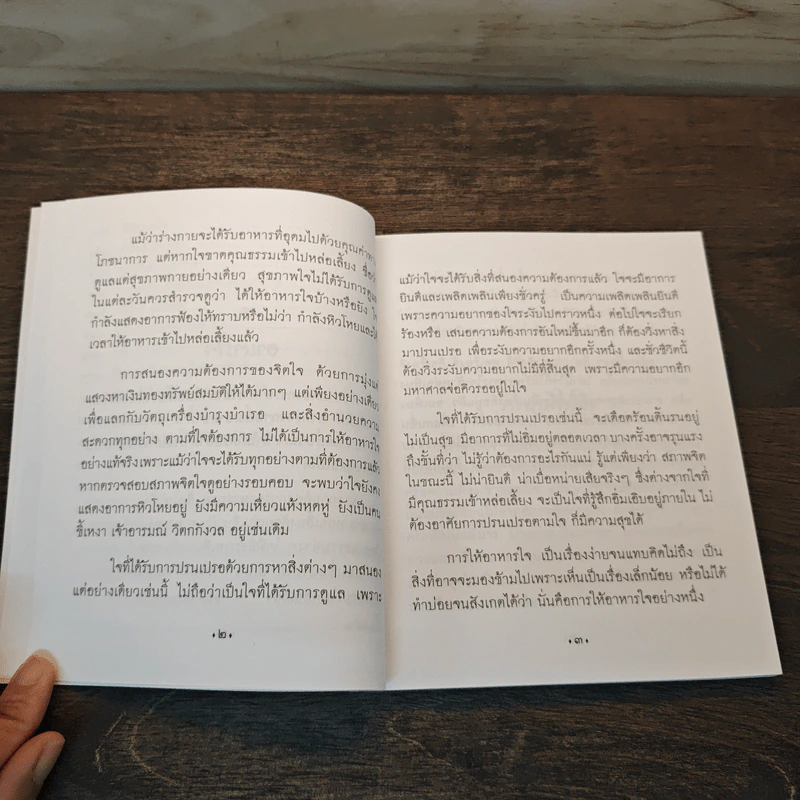 แม้ว่าร่างกายจะได้รับอาหารที่อุดมไปด้วยคุณค่าทาง
โภชนาการ แต่หากใจขาดคุณธรรมเข้าไปหล่อเลี้ยง ชื่อว่า
ดูแลแต่สุขภาพกายอย่างเดียว สุขภาพใจไม่ได้รับการดูแล
ในแต่ละวันควรสำรวจดูว่า ได้ให้อาหารใจบ้างหรือยัง
กำลังแสดงอาการฟ้องให้ทราบหรือไม่ว่า กำลังหิวโหยและ
เวลาให้อาหารเข้าไปหล่อเลี้ยงแล้ว
การสนองความต้องการของจิตใจ ด้วยการมุ่งแต่
แสวงหาเงินทองทรัพย์สมบัติให้ได้มากๆ แต่เพียงอย่างเดียว
เพื่อแลกกับวัตถุเครื่องบำรุงบำเรอ และสิ่งอำนวยความ
สะดวกทุกอย่าง ตามที่ใจต้องการ ไม่ได้เป็นการให้อาหารใจ
อย่างแท้จริงเพราะแม้ว่าใจจะได้รับทุกอย่างตามที่ต้องการแล้ว
หากตรวจสอบสภาพจิตใจดูอย่างรอบคอบ จะพบว่าใจยังคง
แสดงอาการหิวโหยอยู่ ยังมีความเหี่ยวแห้งหดหู่ ยังเป็นคน
ขี้เหงา เจ้าอารมณ์ วิตกกังวล อยู่เช่นเดิม
ใจที่ได้รับการปรนเปรอด้วยการหาสิ่งต่างๆ มาสนอง
แต่อย่างเดียวเช่นนี้ ไม่ถือว่าเป็นใจที่ได้รับการดูแล เพราะ
•๒•
แม้ว่าใจจะได้รับสิ่งที่สนองความต้องการแล้ว ใจจะมีอาการ
ยินดีและเพลิดเพลินเพียงชั่วครู่ เป็นความเพลิดเพลินยินดี
เพราะความอยากของใจระงับไปคราวหนึ่ง ต่อไปใจจะเรียก
ร้องหรือ เสนอความต้องการอันใหม่ขึ้นมาอีก ก็ต้องวิ่งหาสิ่ง
มาปรนเปรอ เพื่อระงับความอยากอีกครั้งหนึ่ง และชั่วชีวิตนี้
ต้องวิ่งระงับความอยากไม่มีที่สิ้นสุด เพราะมีความอยากอีก
มหาศาลจ่อคิวรออยู่ในใจ
ใจที่ได้รับการปรนเปรอเช่นนี้ จะเดือดร้อนดิ้นรนอยู่
ไม่เป็นสุข มีอาการที่ไม่อิ่มอยู่ตลอดเวลา บางครั้งอาจรุนแรง
ถึงขั้นที่ว่า ไม่รู้ว่าต้องการอะไรกันแน่ รู้แต่เพียงว่า สภาพจิต
ในขณะนี้ ไม่น่ายินดี น่าเบื่อหน่ายเสียจริงๆ ซึ่งต่างจากใจที่
มีคุณธรรมเข้าหล่อเลี้ยง จะเป็นใจที่รู้สึกอิ่มเอิบอยู่ภายใน ไม่
ต้องอาศัยการปรนเปรอตามใจ ก็มีความสุขได้
การให้อาหารใจ เป็นเรื่องง่ายจนแทบคิดไม่ถึง เป็น
สิ่งที่อาจจะมองข้ามไปเพราะเห็นเป็นเรื่องเล็กน้อย หรือไม่ได้
ทำบ่อยจนสังเกตได้ว่า นั่นคือการให้อาหารใจอย่างหนึ่ง
•๓•